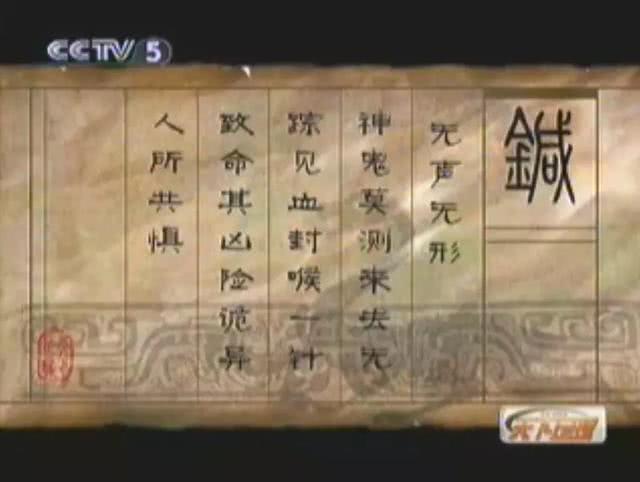 CCTV 5
鍼
无声无形
神鬼莫测来去无
踪见血封喉一针
致命其凶险诡异
人所共惧